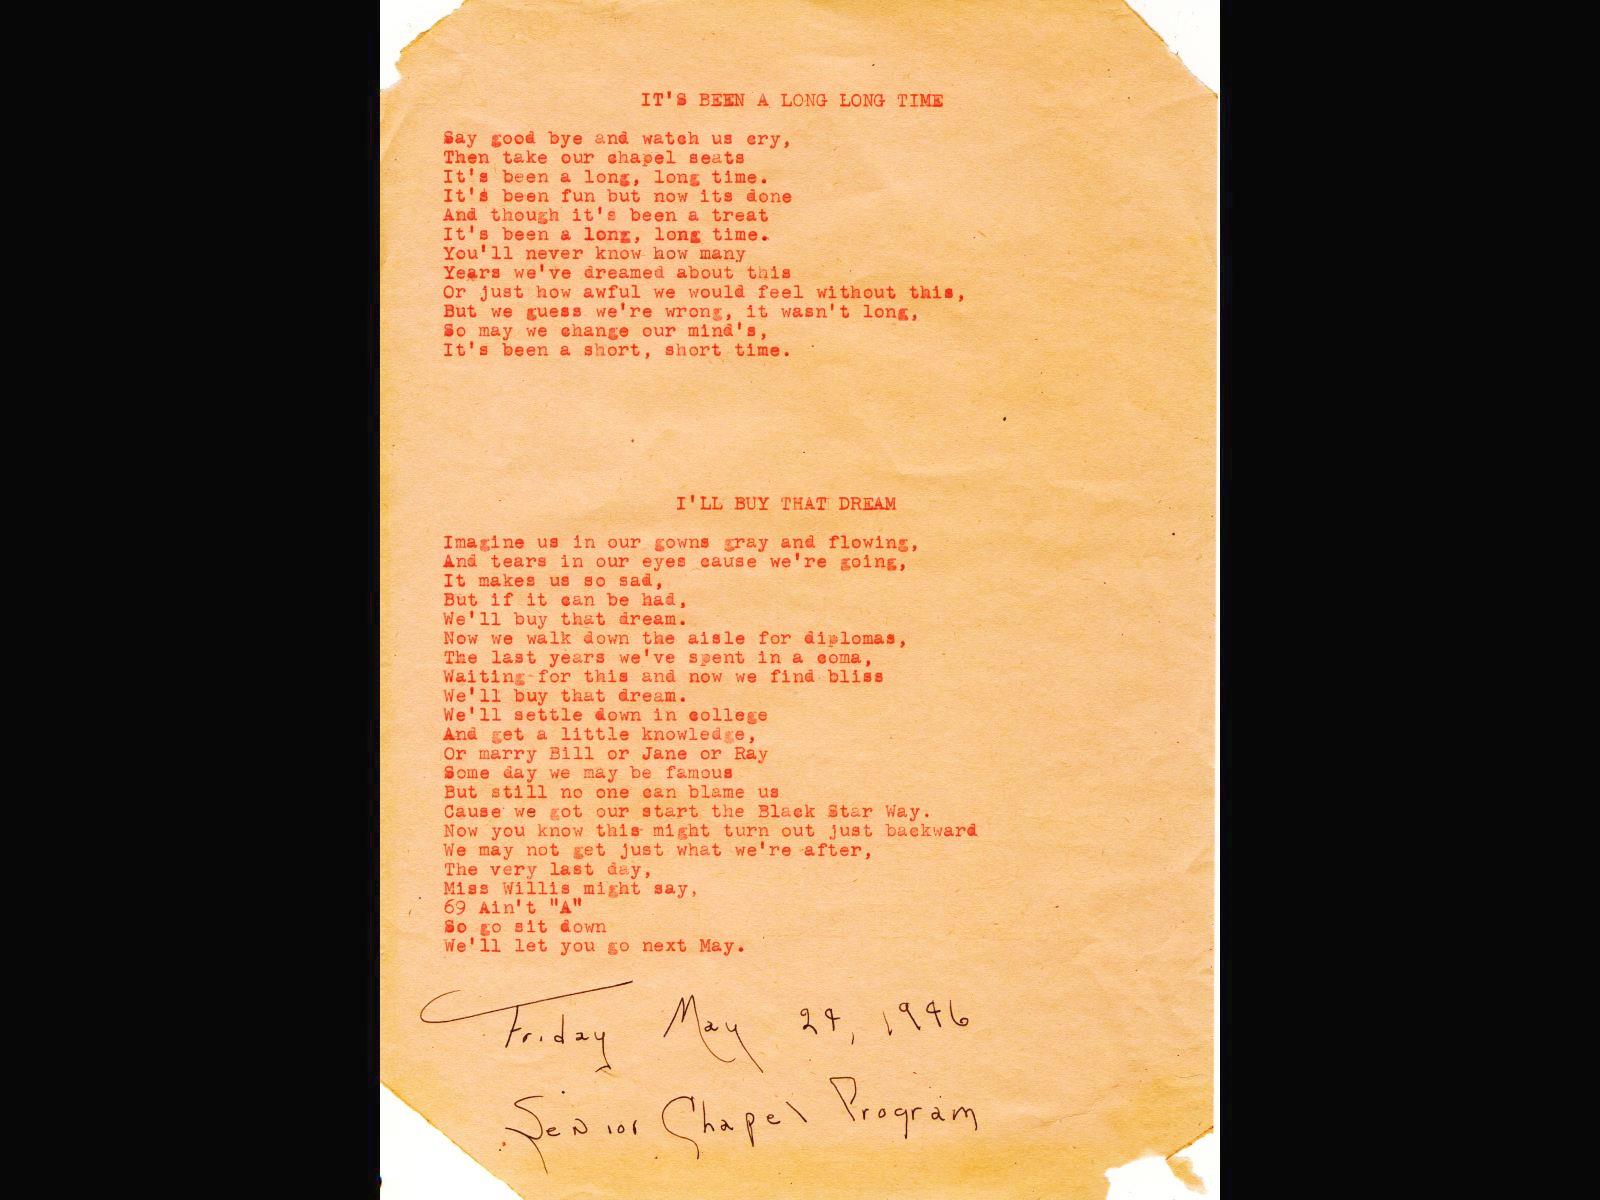 IT'S BEEN A LONG LONG TIME
Say good bye and watch us cry,
Then take our chapel seats
It's been a long, long time.
It's been fun but now its done
And though it's been a treat
It's been a long, long time.
You'll never know how many
Years we've dreamed about this
Or just how awful we would feel without this,
But we guess we're wrong, it wasn't long,
So may we change our mind's,
It's been a short, short time.
I'LL BUY THAT DREAM
Imagine us in our gowns gray and flowing,
And tears in our eyes cause we're going,
It makes us so sad,
But if it can be had,
We'll buy that dream.
Now we walk down the aisle for diplomas,
The last years we've spent in a coma,
Waiting for this and now we find bliss
We'll buy that dream.
We'll settle down in college
And get a little knowledge,
Or marry Bill or Jane or Ray
Some day we may be famous
But still no one can blame us
Cause we got our start the Black Star Way.
Now you know this might turn out just backward
We may not get just what we're after,
The very last day,
Miss Willis might say,
69 Ain't "A"
So go sit down
We'll let you go next May.
Friday May 24, 1946
Senior Chapel Program